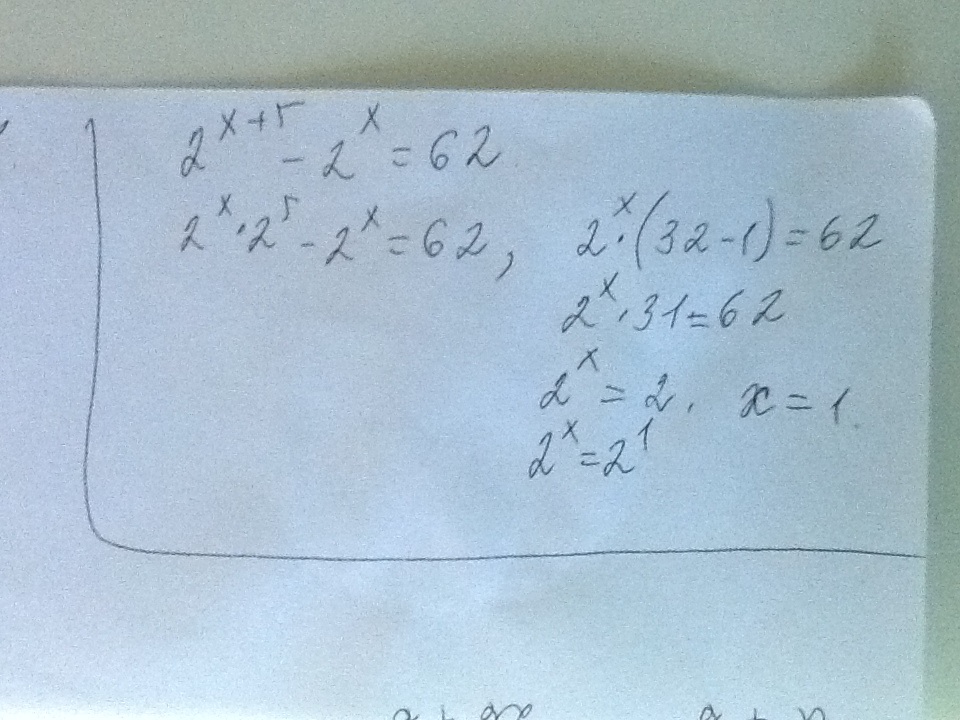 2^{x+5} - 2^x = 62
2^x · 2^5 - 2^x = 62, 2^x · (32-1) = 62
2^x · 31 = 62
2^x = 2. x = 1.
2^x = 2^1